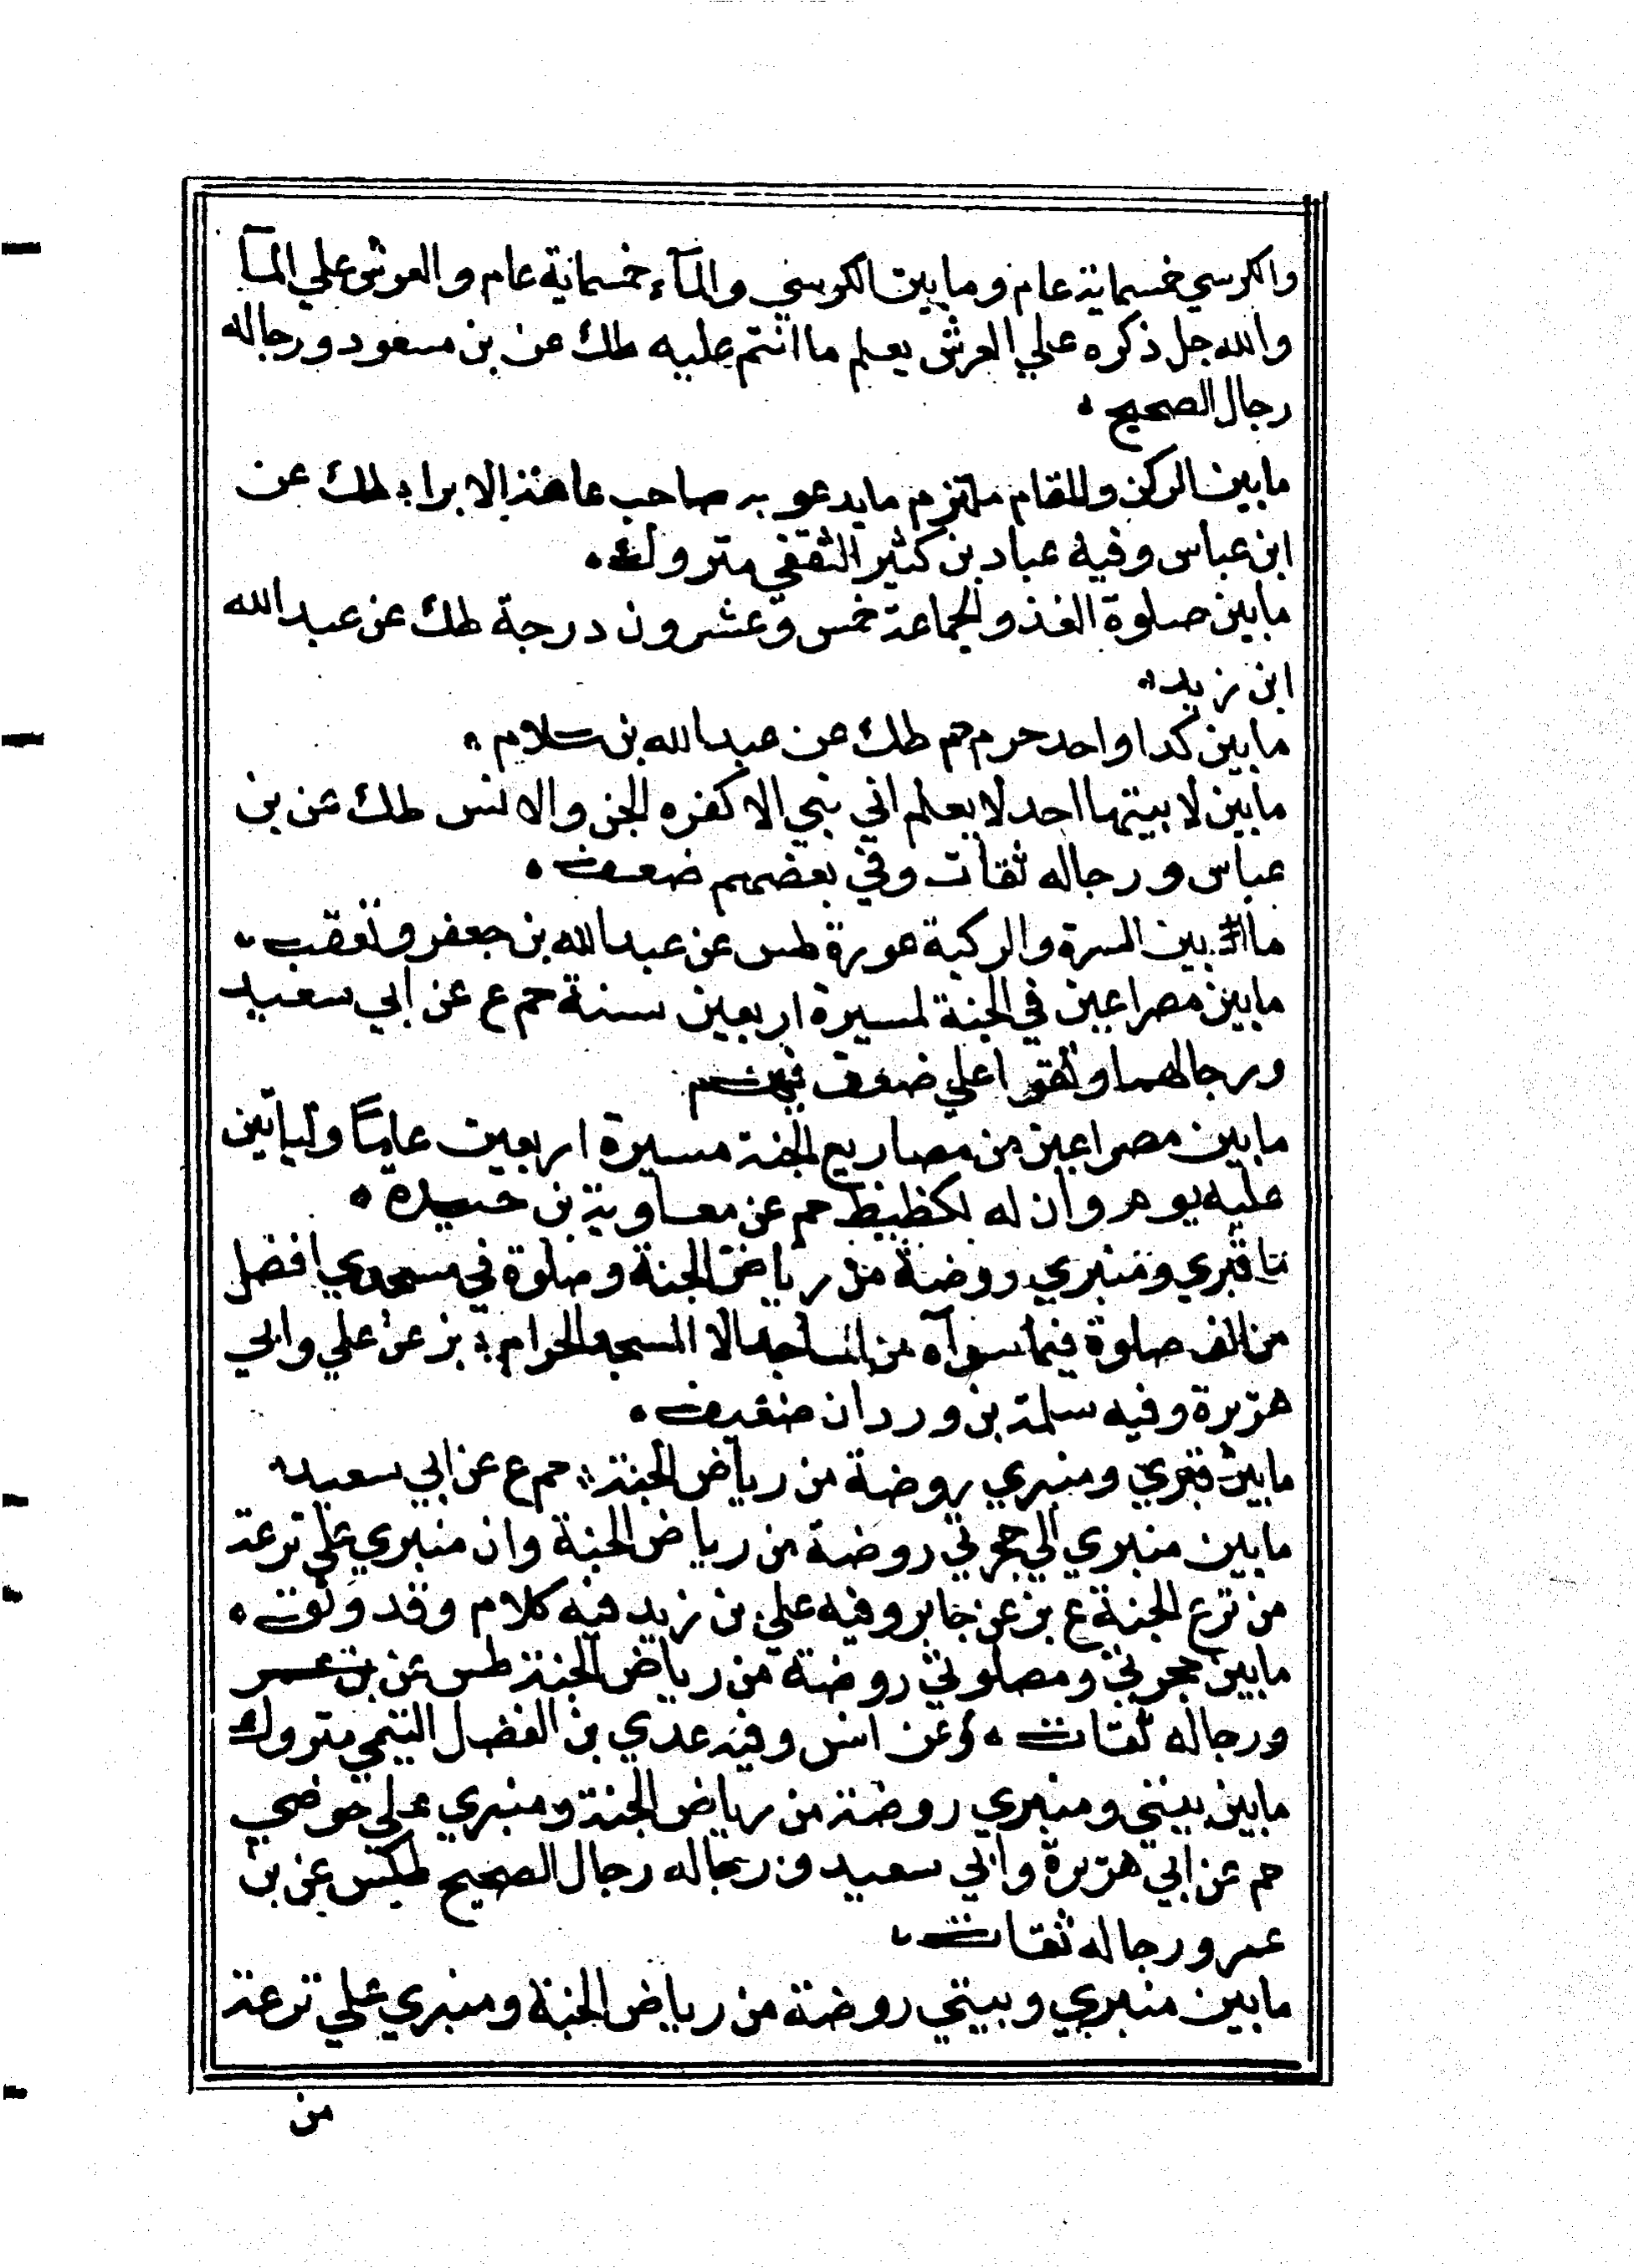 والكرسي خمسماية عام وما بين الكرسي والمآء خمسماية عام والعرش علي المآ
والله جل ذكره علي العرش يعلم ما انتم عليه طك عن بن مسعود ورجاله
رجال الصحيح
ما بين الركن والمقام ملتزم ما يدعو به صاحب عاهة الا برا طك عن
ابن عباس وفيه عباد بن كثير الثقفي متروك
ما بين صلوة الفذ والجماعة خمس وعشرون درجة طك عن عبد الله
ابن زيد
ما بين كدا واحد حرم حم طك عن عبد الله بن سلام
ما بين لا بيتها احد لا يعلم اني نبي الا كفره الجن والانس طك عن بن
عباس ورجاله ثقات وفي بعضهم ضعف
ما بين السرة والركبة عورة طس عن عبد الله بن جعفر وتعقب
ما بين مصراعين في الجنة لمسيرة اربعين سنة حم ع عن ابي سعيد
ورجالهما وثقوا علي ضعف فيهم
ما بين مصراعين من مصاريع الجنة مسيرة اربعين عاما وليأتين
عليه يوم وان له لكظيظ حم عن معاوية بن حيدة
ما قبري ومنبري روضة من رياض الجنة وصلوة في مسجدي افضل
من الف صلوة فيما سواه من المساجد الا المسجد الحرام بز عن علي وابي
هريرة وفيه سلمة بن وردان ضعيف
ما بين قبري ومنبري روضة من رياض الجنة حم ع عن ابي سعيد
ما بين منبري الي حجرتي روضة من رياض الجنة وان منبري علي ترعة
من ترع الجنة ع بز عن جابر وفيه علي بن زيد فيه كلام وقد وثق
ما بين حجرتي ومصلوتي روضة من رياض الجنة طس عن بن عمر
ورجاله ثقات وعن انس وفيه عدي بن الفضل التيمي متروك
ما بين بيتي ومنبري روضة من رياض الجنة ومنبري علي حوضي
حم عن ابي هريرة وابي سعيد ورجاله رجال الصحيح طكس عن بن
عمر ورجاله ثقات
ما بين منبري وبيتي روضة من رياض الجنة ومنبري علي ترعة
من